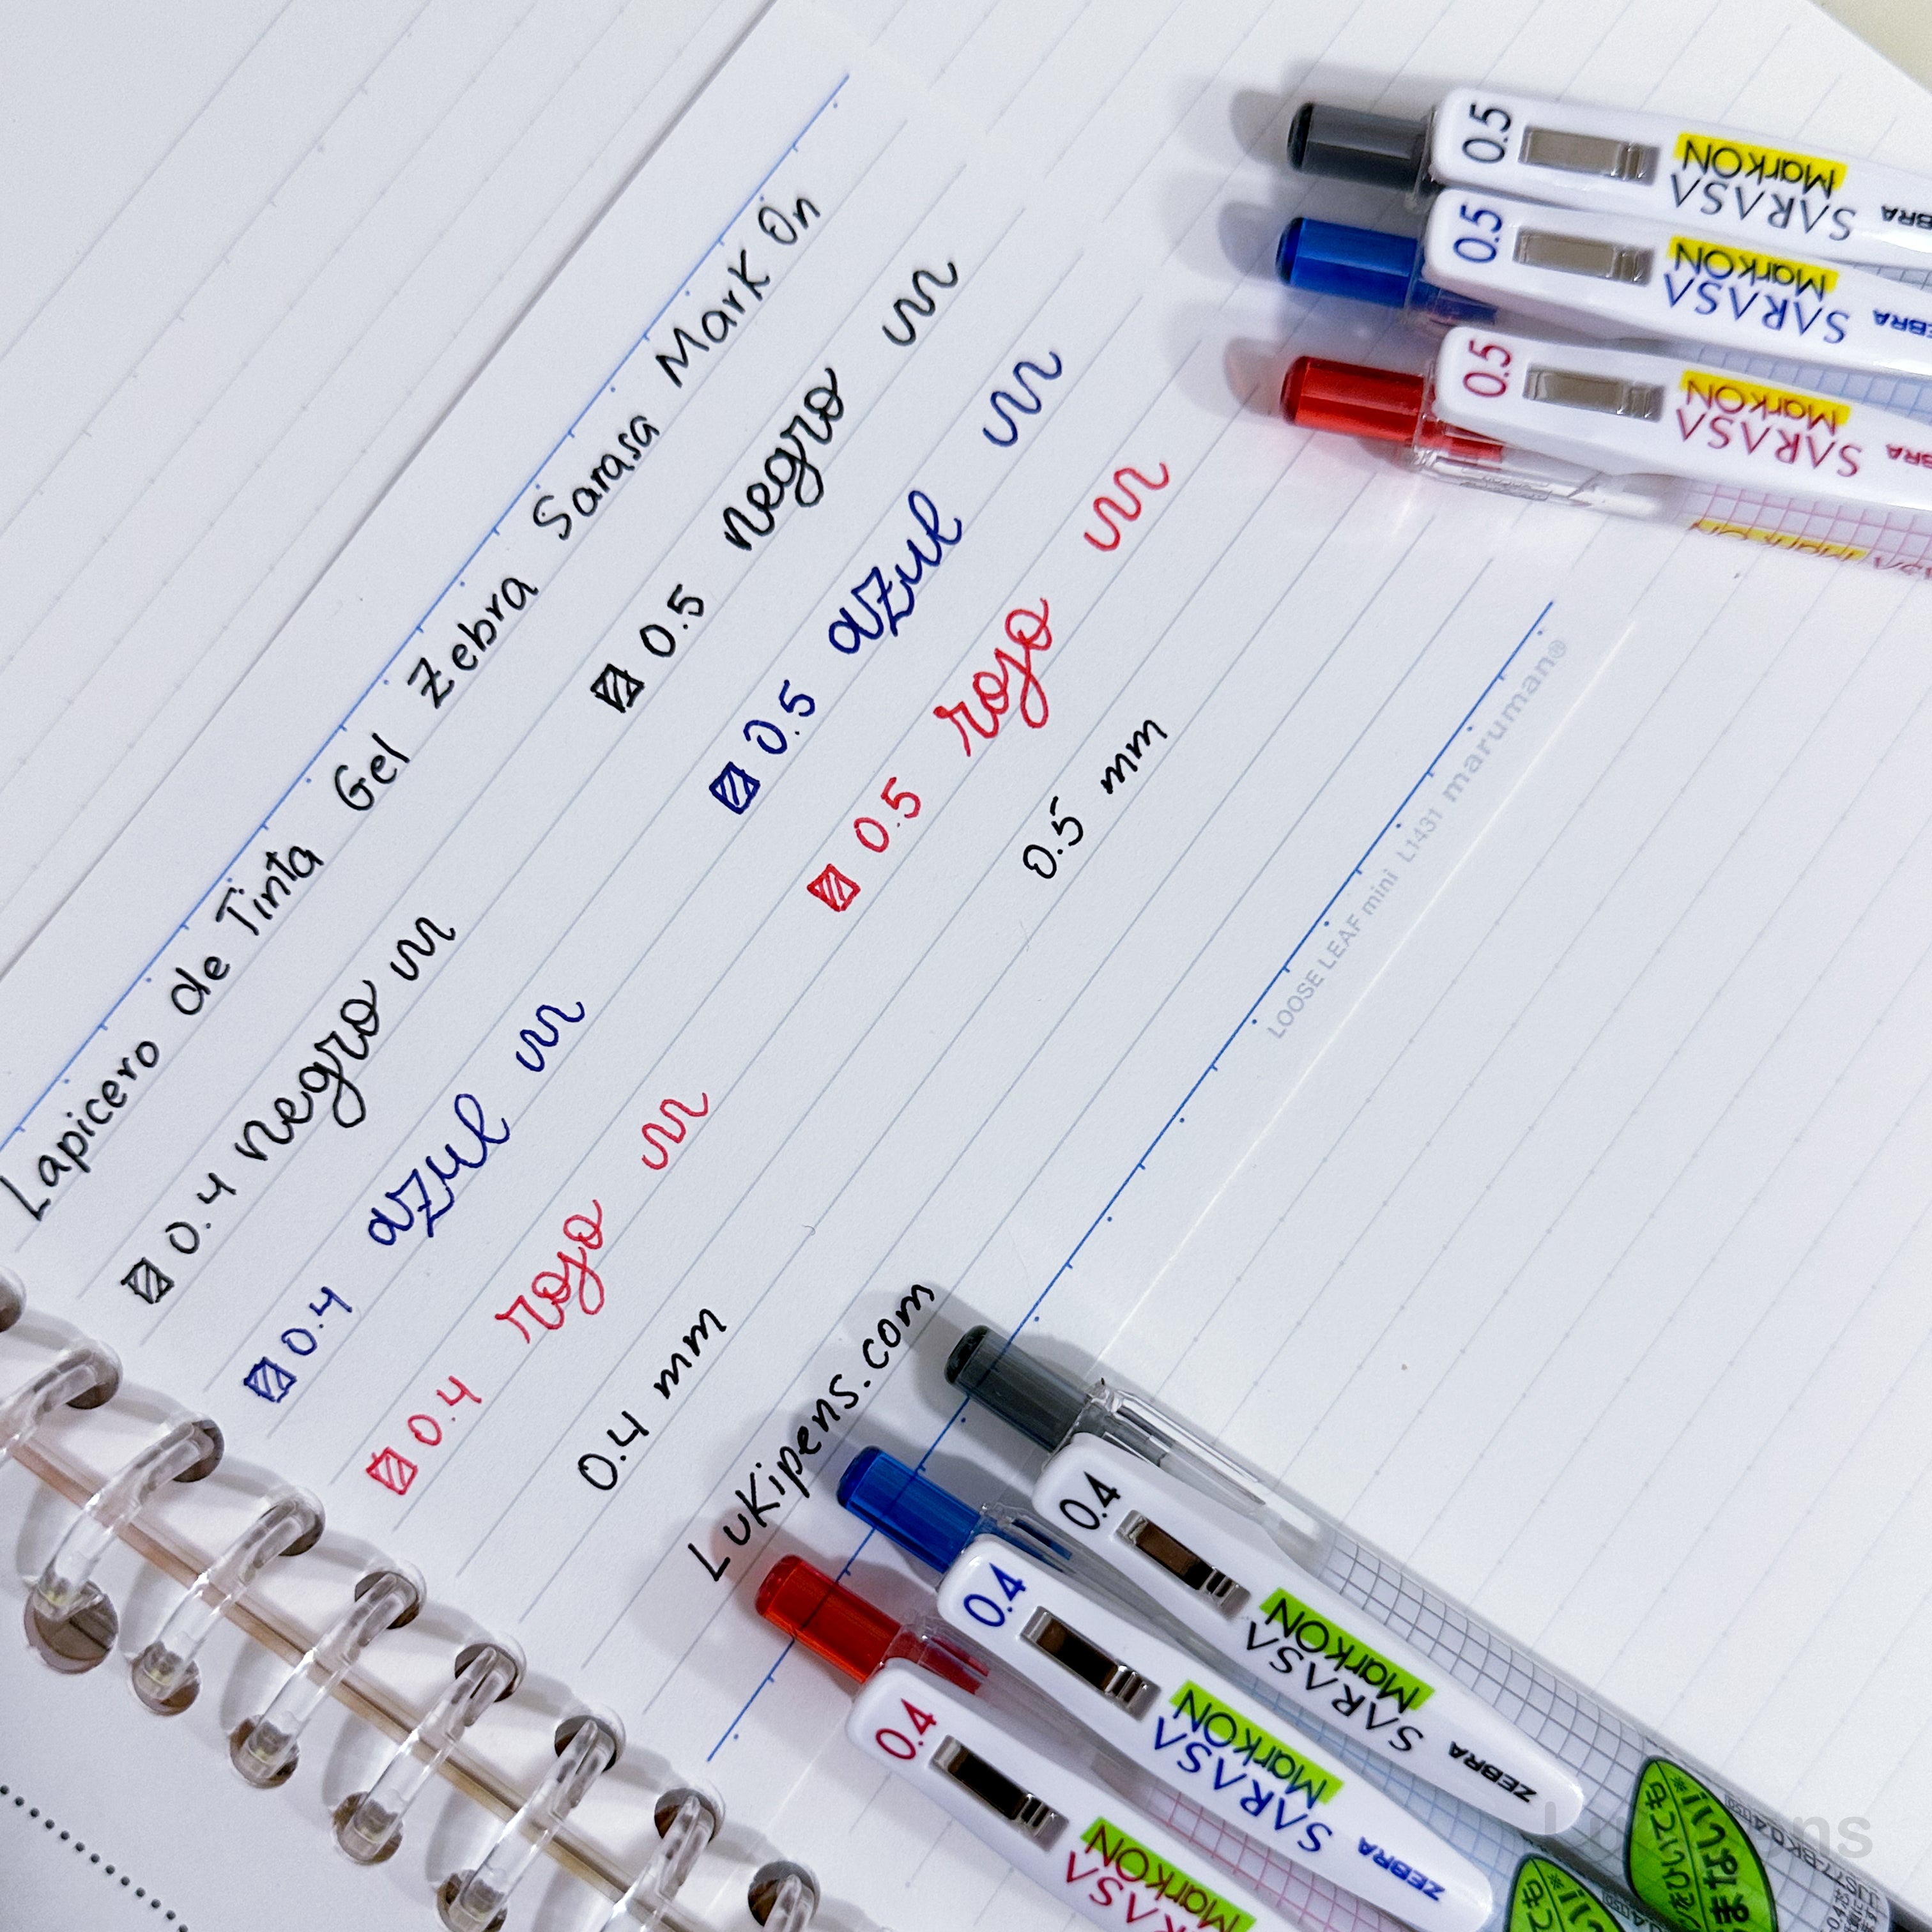 Lapicero de Tinta Gel Zebra Sarasa Mark On
0.4 negro
0.5 negro
0.4 azul
0.5 azul
0.4 rojo
0.5 rojo
0.4 mm
0.5 mm
LuKipens.com
LOOSE LEAF mini L1431 maruman®
0.5
SARASA
MarkON
ZEBRA
0.5
SARASA
MarkON
ZEBRA
0.5
SARASA
MarkON
0.4
SARASA
MarkON
ZEBRA
0.4
SARASA
MarkON
ZEBRA
0.4
SARASA
MarkON